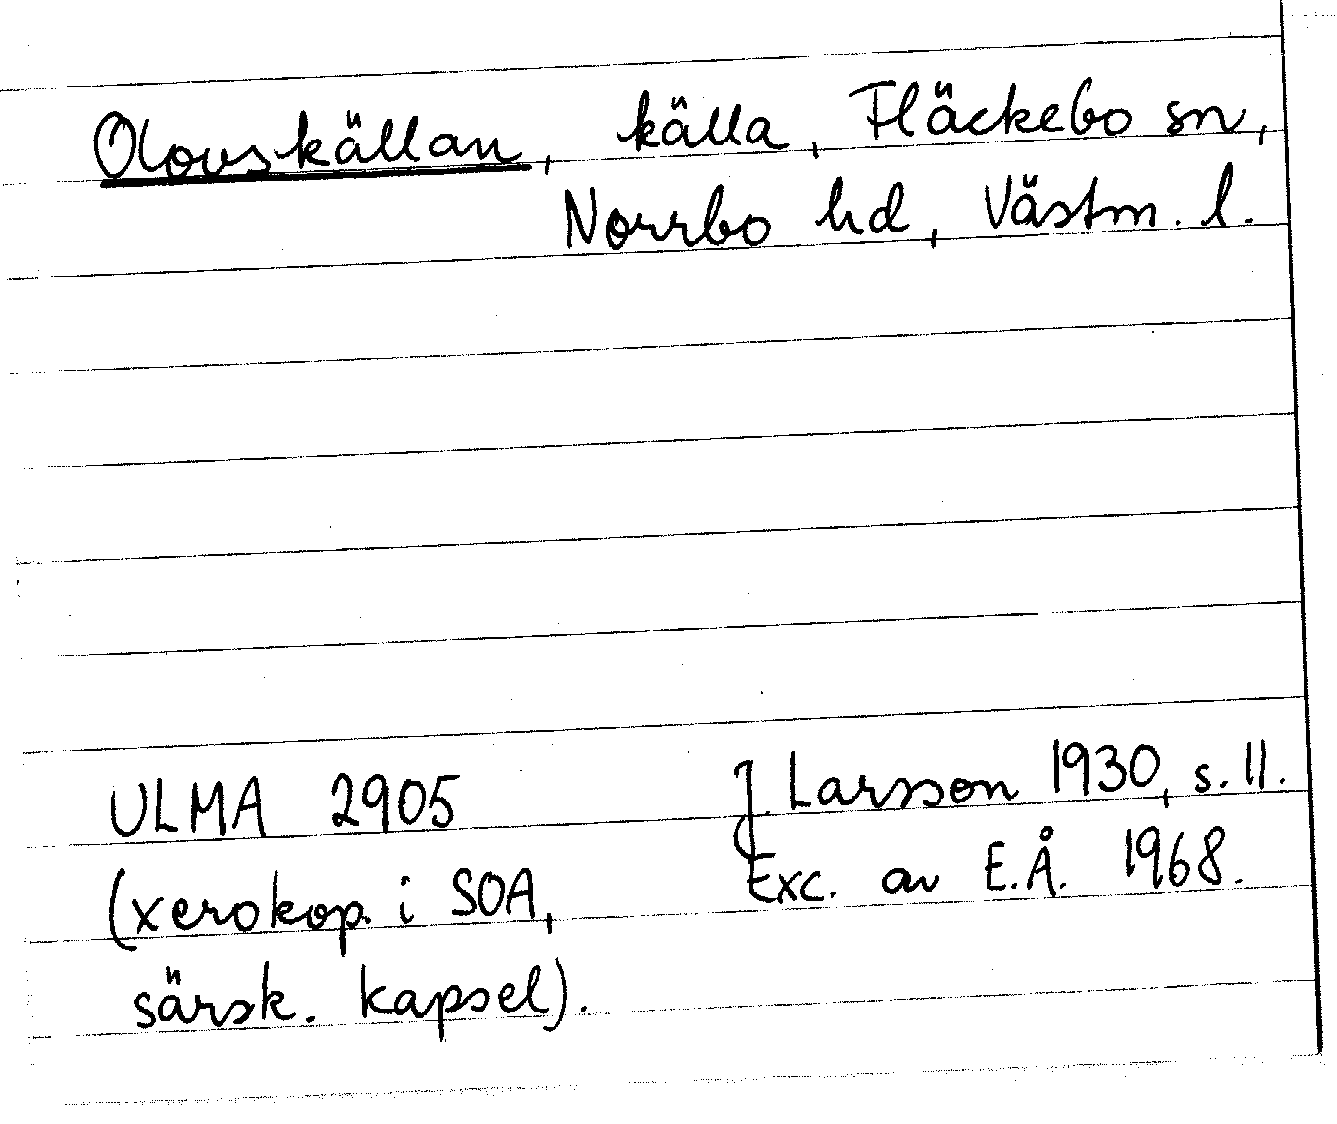 Olovskällan, källa, Fläckebo sn,
Norrbo hd, Västm. l.
ULMA 2905
J. Larsson 1930, s. 11.
(xerokop. i SOA,
Exc. av E.Å. 1968.
särsk. kapsel).